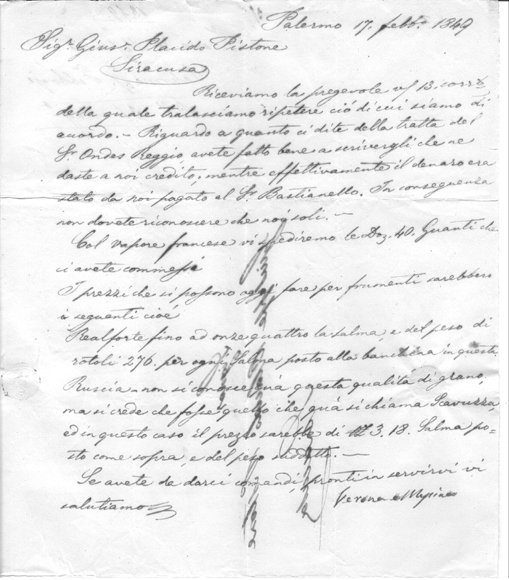 Palermo 17. febb.º 1849
Sigr. Giusr. Placido Pistone
Siracusa
Riceviamo la pregevole vs/ 13. corr.
della quale tralasciamo ripetere ciò di cui siamo di
accordo. - Riguardo a quanto ci dite della tratta del
Sr. Ondes Reggio avete fatto bene a scrivergli che ne
daste a noi credito, mentre effettivamente il denaro era
stato da noi pagato al Sr. Bastianello. In conseguenza
non dovete riconoscere che noi soli. -
Col vapore francese vi spediremo le Doz. 40. Guanti che
ci avete commesse
I prezzi che si possono oggi fare per frumenti sarebbero
i seguenti cioè
Realforte fino ad onze quattro la salma, e del peso di
rotoli 276. per ogni Salma posto alla banchina in questa
Ruscia - non si conosce quà questa qualità di grano,
ma si crede che fosse quello che quà si chiama Lavuzza,
ed in questo caso il prezzo sarebbe di 3. 18. Salma po-
sto come sopra, e del peso suddetto. -
Se avete da darci comandi, pronti in servirvi vi
salutiamo
Verona e